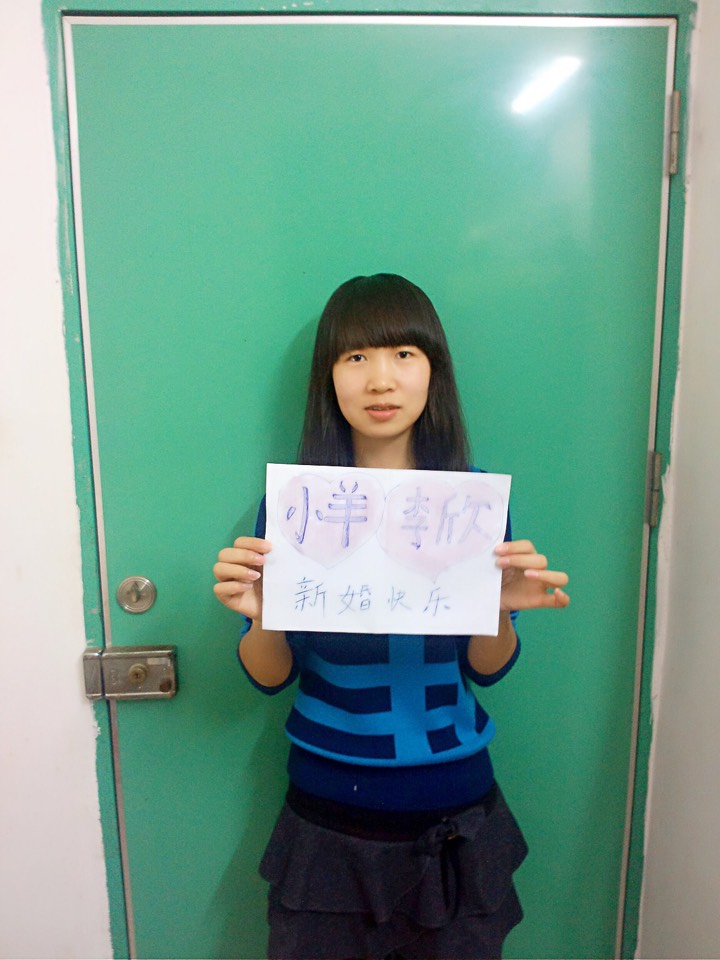 小羊 李欣
新婚快乐